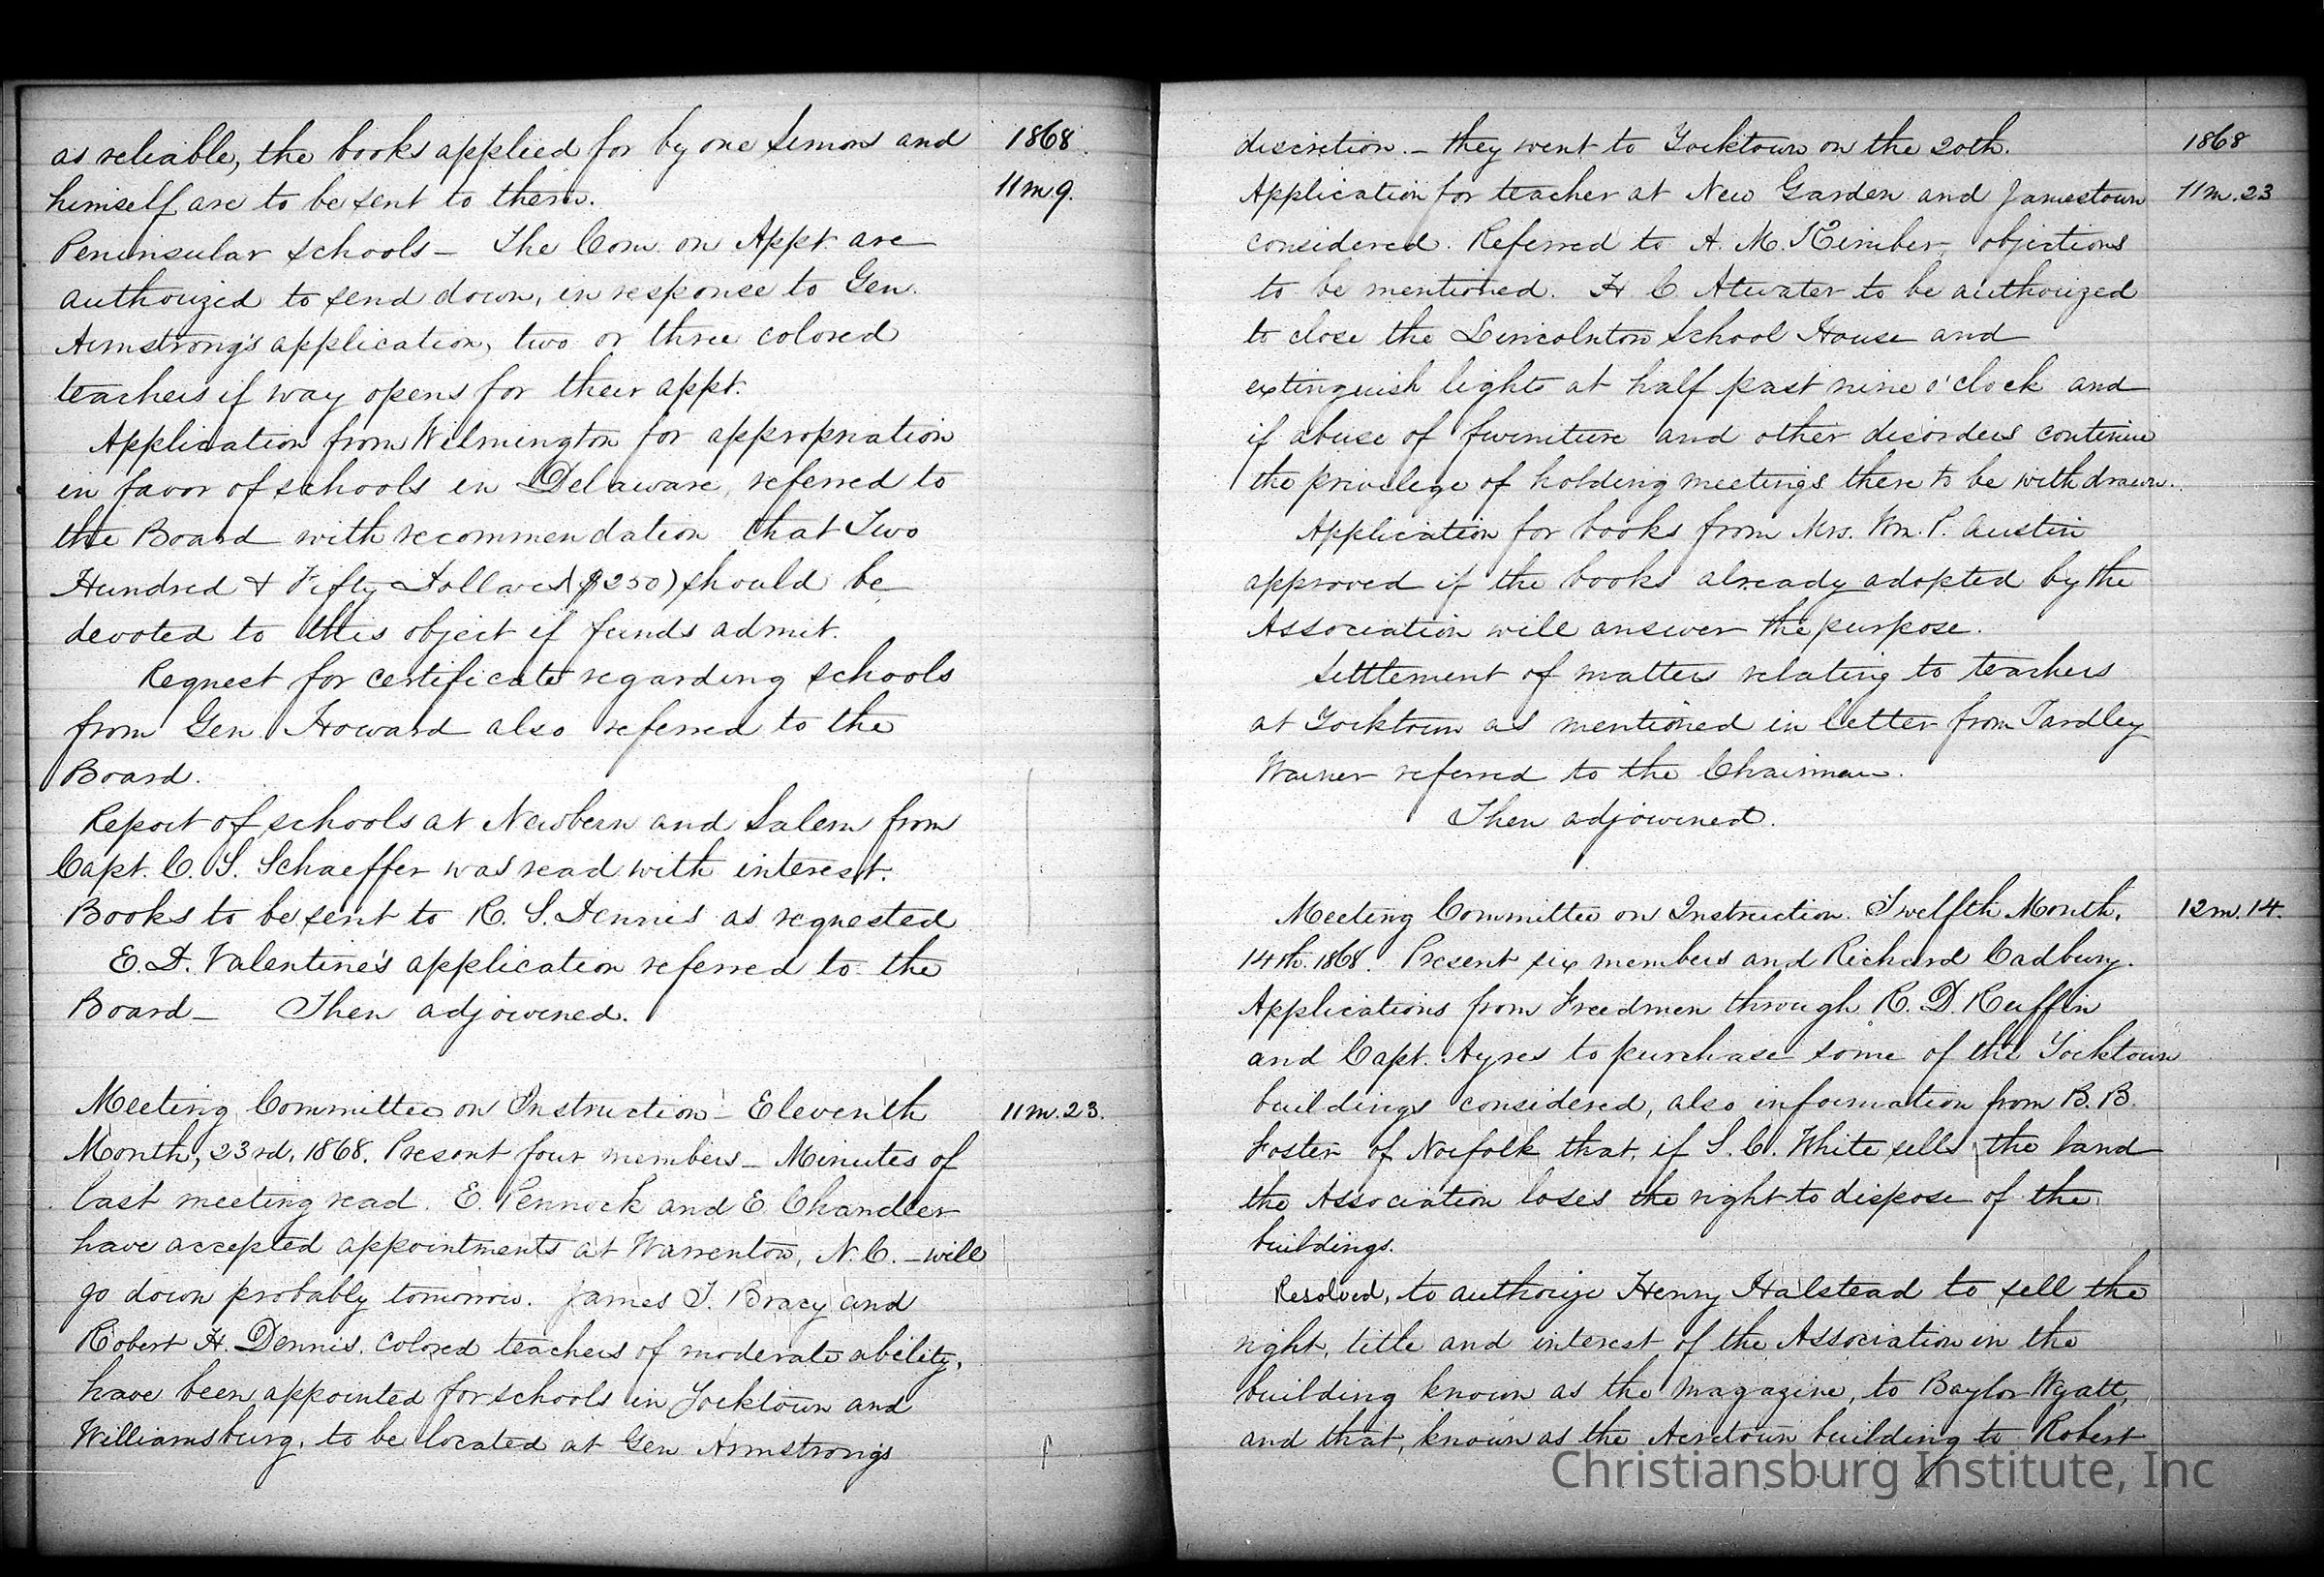 as reliable, the books applied for by one Simons and
himself are to be sent to them.
Peninsular schools — The Com. on Appt. are
authorized to send down, in response to Gen.
Armstrong's application, two or three colored
teachers if way opens for their appt.
Application from Wilmington for appropriation
in favor of schools in Delaware, referred to
the Board with recommendation that Two
Hundred & Fifty Dollars ($250) should be
devoted to this object if funds admit.
Request for certificate regarding schools
from Gen Howard also referred to the
Board.
Report of schools at Newbern and Salem from
Capt. C. S. Schaeffer was read with interest.
Books to be sent to R. S. Dennis as requested
E. D. Valentine's application referred to the
Board — Then adjourned.
Meeting Committee on Instruction — Eleventh
Month, 23rd, 1868. Present four members — Minutes of
last meeting read. E. Pennock and E. Chandler
have accepted appointments at Warrenton, N.C. — will
go down probably tomorrow. James T. Bracy and
Robert H. Dennis, colored teachers of moderate ability,
have been appointed for schools in Yorktown and
Williamsburg, to be located at Gen Armstrongs
1868
11m.9.
11m.23.
discretion. — they went to Yorktown on the 20th.
Application for teacher at New Garden and Jamestown
considered. Referred to A. M. Kimber, objections
to be mentioned. H C Atwater to be authorized
to close the Lincolnton School House and
extinguish lights at half past nine o'clock and
if abuse of furniture and other disorders continue
the privilege of holding meetings there to be withdrawn.
Application for books from Mrs. Wm. P. Austin
approved if the books already adopted by the
Association will answer the purpose.
Settlement of matters relating to teachers
at Yorktown as mentioned in letter from Yardley
Warner referred to the Chairman.
Then adjourned.
Meeting Committee on Instruction. Twelfth Month,
14th. 1868. Present six members and Richard Cadbury.
Applications from Freedmen through R. D. Ruffin
and Capt. Ayres to purchase some of the Yorktown
buildings considered, also information from B. B.
Foster of Norfolk that, if S. C. White sells the land
the Association loses the right to dispose of the
buildings.
Resolved, to authorize Henry Halstead to sell the
right, title and interest of the Association in the
building known as the Magazine, to Baylor Wyatt,
and that, known as the Acretown building to Robert
1868
11m.23
12m.14.
Christiansburg Institute, Inc